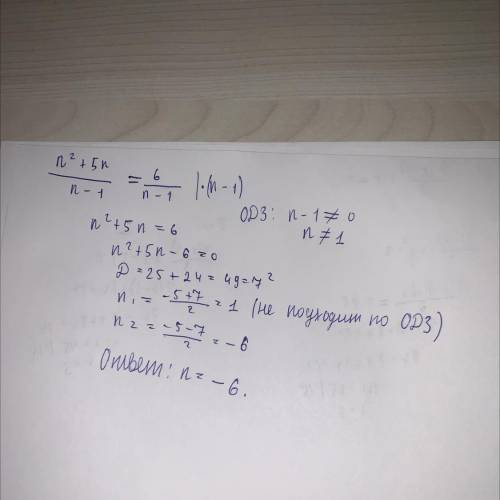 n² + 5n / n - 1 = 6 / n - 1 | · (n - 1)
ОДЗ: n - 1 ≠ 0
n² + 5n = 6
n ≠ 1
n² + 5n - 6 = 0
Д = 25 + 24 = 49 = 7²
n₁ = -5+7 / 2 = 1 (не подходит по ОДЗ)
n₂ = -5-7 / 2 = -6
Ответ: n = -6.